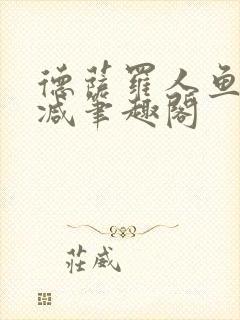 德萨罗人鱼
减笔趣阁
庄威